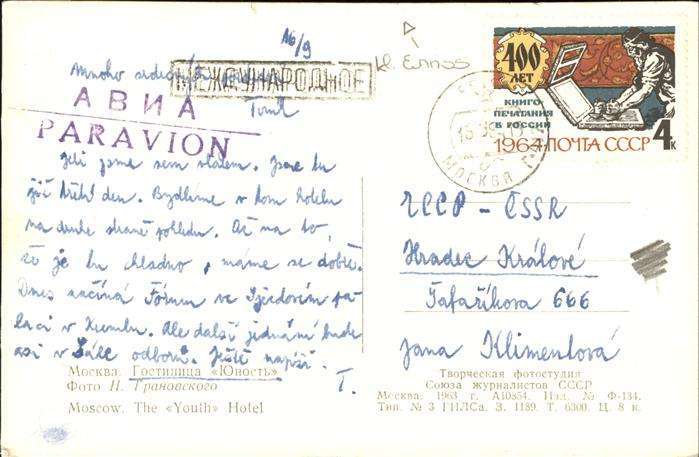 16/9
Mnoho srdečných
МЕЖДУНАРОДНОЕ
Tomk
АВИА
PARAVION
Jeli jsme sem vlakem. Jsme tu
již třetí den. Bydlíme v tom hotelu
na druhé straně pohledu. Až na to,
že je tu chladno, máme se dobře.
Dnes začíná Fórum ve Sjezdovém pa-
láci v Kremlu. Ale další jednání bude
asi v Sále odborů. Ještě napíši.
T.
Москва. Гостиница «Юность»
Фото Н. Грановского
Moscow. The «Youth» Hotel
400
ЛЕТ
КНИГО-
ПЕЧАТАНИЯ
В РОССИИ
1964 ПОЧТА СССР 4к
МОСКВА
ЧССР - ČSSR
Hradec Králové
Šafaříkova 666
Jana Klimentová
Творческая фотостудия
Союза журналистов СССР
Москва. 1963 г. А10354. Изд. № Ф-134.
Тип. № 3 ГИЛСа. З. 1189. Т. 6300. Ц. 8 к.